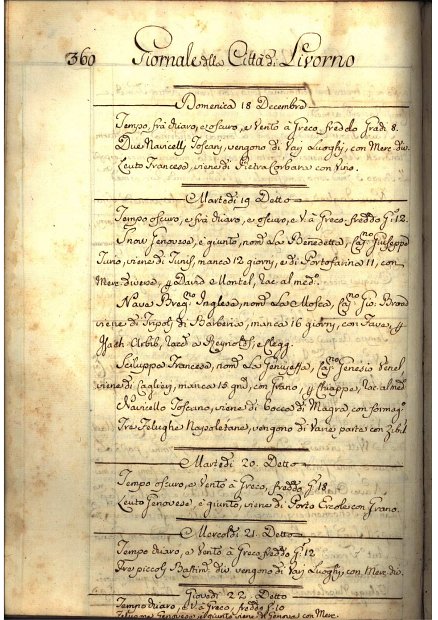 360 Giornale della Città di Livorno
Domenica 18 Decembre
Tempo frà chiaro, e oscuro, e Vento à Greco freddo Gradi 8.
Due Navicelli Toscani, vengono di Varj Luoghi, con Merc. div.
Leuto Francese, viene di Pietra Corbara con Vino.
Martedi 19 Detto
Tempo oscuro, e frà chiaro, e oscuro, e V. à Greco freddo G. 12.
Snow Genovese, è giunto, nomo. La Benedetta, Capno. Giuseppe
viene di Tunis, manca 12 giorni, e di Portofarina 11, con
Merc. diverse, David Montel, Rac. al medo.
Nave Inglese, nomo. La Mosca, Capno. Gio.
viene di Tripoli di Barberia, manca 16 giorni, con Fave,
Isach Arbib, Racc. a Reynolds, e Clegg.
Sciluppa Francese, nomo. La Capno. Genesio
viene di Cagliery, manca 18 gni, con Grano, Chiappe, Rac. al medo.
Navicello Toscano, viene di Bocca di Magra con formagio.
Tre Felughe Napoletane, vengono di Varie parte con Zibib.
Martedi 20. Detto
Tempo oscuro, e Vento à Greco, freddo G. 18.
Leuto Genovese, è giunto, viene di Porto Ercole con Grano.
Mercoldi 21. Detto
Tempo chiaro, e Vento à Greco freddo G. 12
Tre piccoli Bastimti. div. vengono di Varj Luoghi, con Merc. div.
Giovedi 22. Detto
Tempo chiaro, e V. à Greco, freddo G. 10
Genovese, è giunto viene di Genova con Merc.